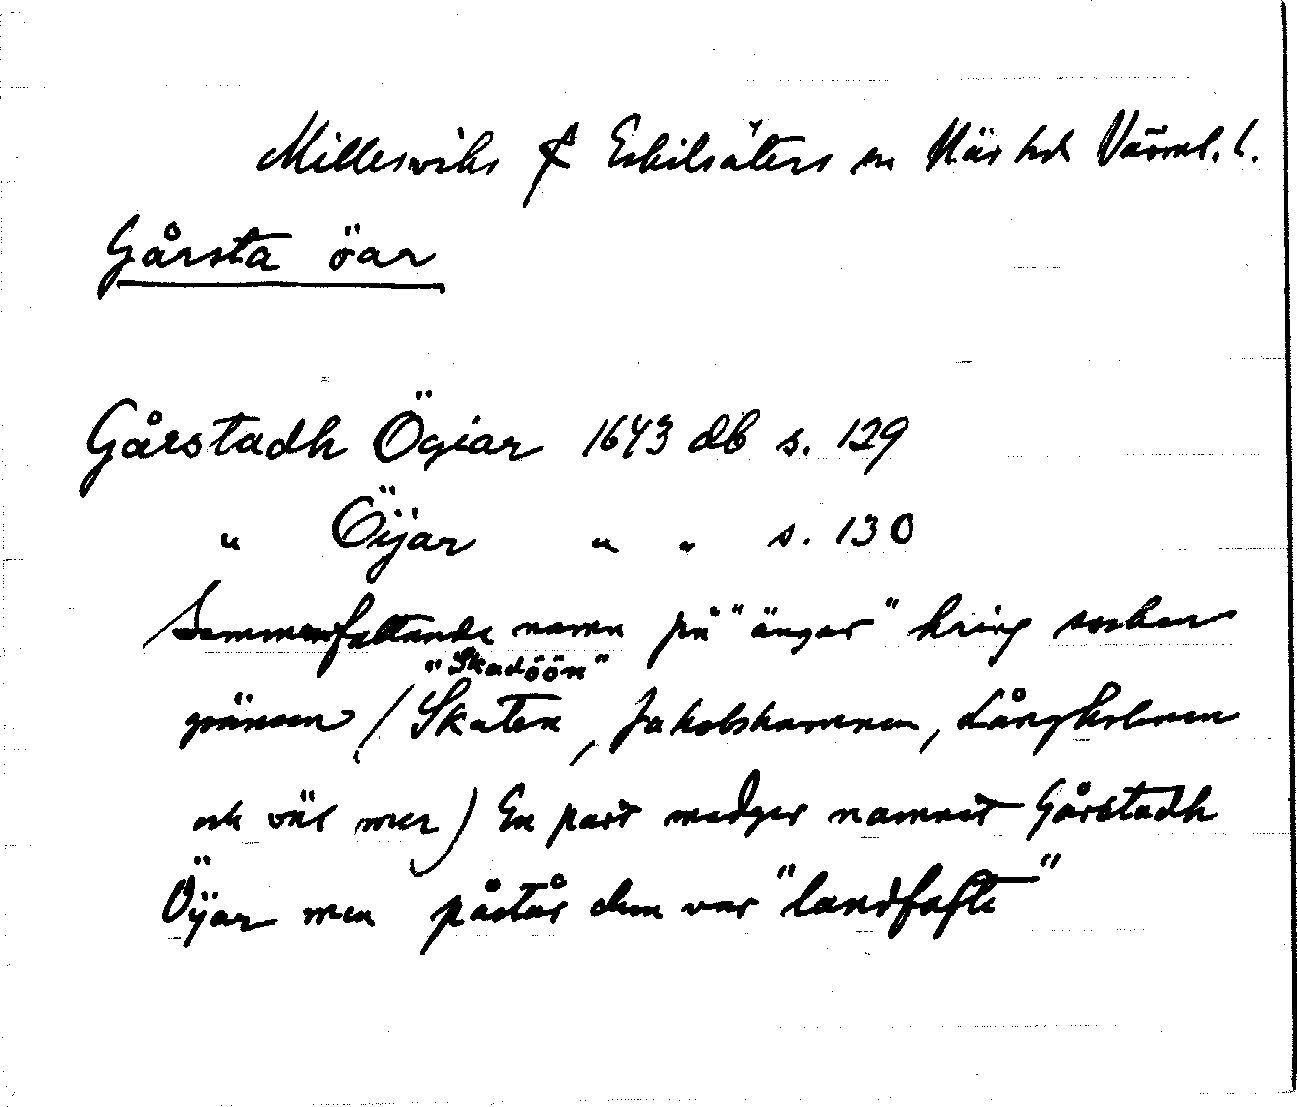 Milleswiks & Eskilsäters sn Näs hd Värml. l.
Gårsta öar
Gårstadh Ögiar 1643 db s. 129
" Öÿar " " s. 130
Sammanfattande namn på "ängar" kring socken
"Skadöön"
gränsen (Skaten, Jakobshamnen, Långholmen
och väl mer) En part medger namnet Gårstadh
Öÿar men påstår dem var "landfaste"